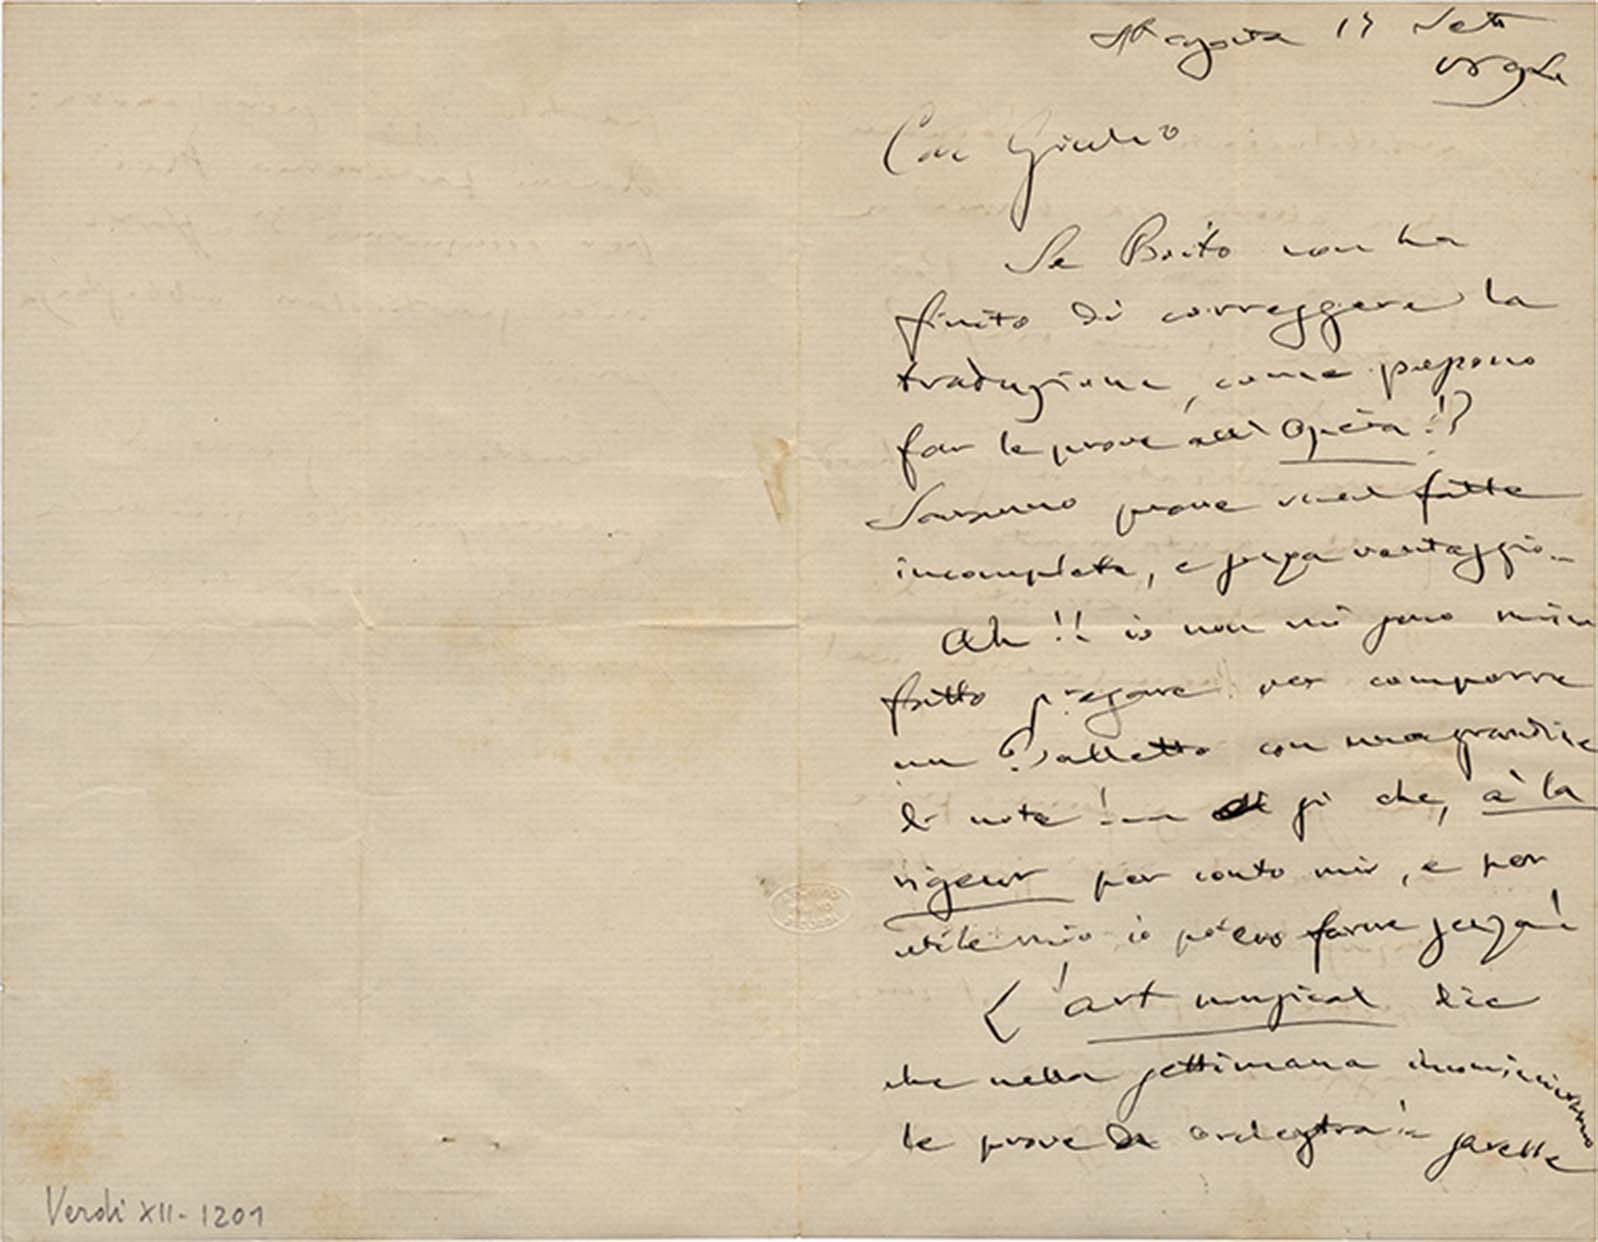 St Agata 17 Sett
1894
Car Giulio
Se Boito non ha
finito di correggere la
traduzione, come possono
far le prove all'Opéra!?
Saranno prove male fatte
incomplete, e senza vantaggio
Ah!! io non mi sono
fatto pregare per comporre
un Balletto con una grandine
di note! si che, à la
rigeur per conto mio, e per
utile mio io potevo farne senza!
L'art musical dice
che nella settimana incominciano
le prove di orchestra: sarebbe
Verdi XII-1201